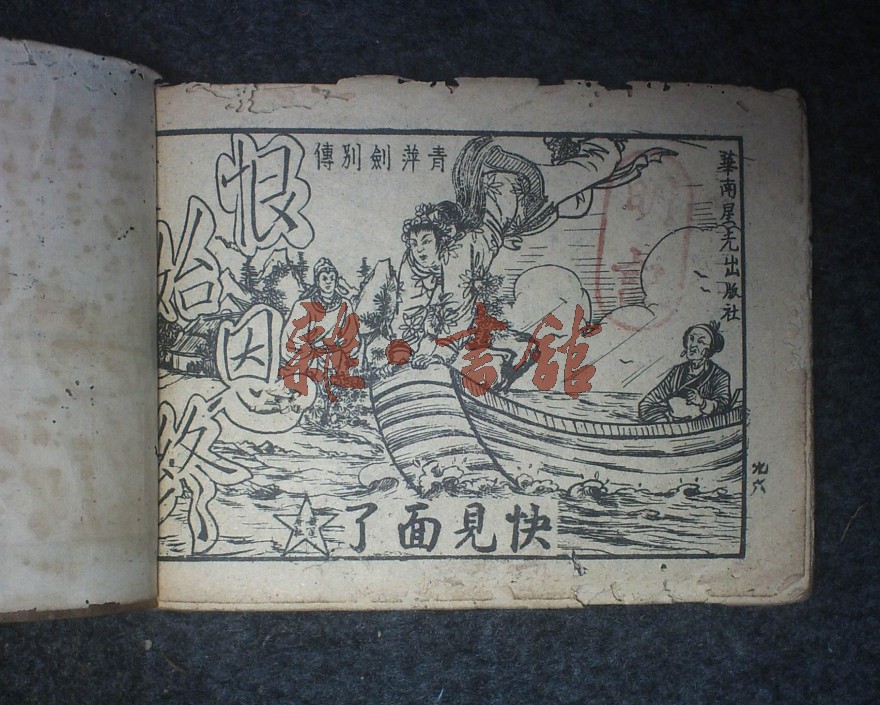 華南星光出版社
青萍劍別傳
恨始恩終
快見面了
九六
雜·書館